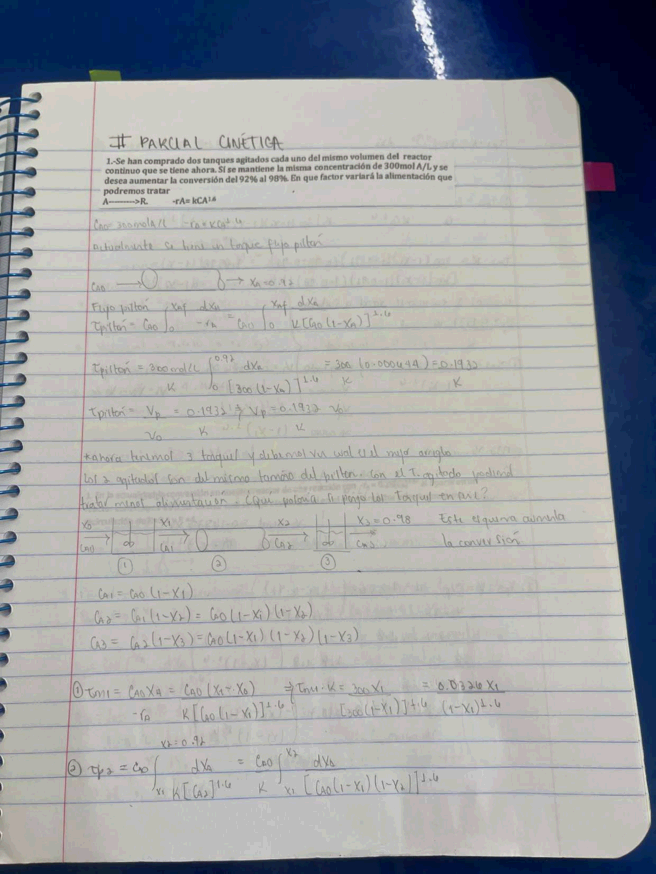 II PARCIAL CINÉTICA
1.-Se han comprado dos tanques agitados cada uno del mismo volumen del reactor
continuo que se tiene ahora. Si se mantiene la misma concentración de 300mol A/L y se
desea aumentar la conversión del 92% al 98%. En que factor variará la alimentación que
podremos tratar
A--------->R. -rA= kCA^1.6
Actualmente se tiene un tanque flujo pistón
CA0 → → XA=0.92
Flujo pistón
τpistón = CA0 ∫0^XAf dXA/-rA = CA0 ∫0^XAf dXA/K[CA0(1-XA)]^1.6
τpistón = 300mol/L /K ∫0^0.92 dXA/[300(1-XA)]^1.6 = 300/K (0.000644) = 0.1932/K
τpistón = Vp/V0 = 0.1932/K ⇒ Vp = 0.1932/K V0
*ahora tenemos 3 tanques y debemos ver cual es el mejor arreglo
Los 2 agitados son del mismo tamaño del pistón. con el T. agitado podremos
tratar menos alimentación. ¿Que pasaría si pongo los Tanques en serie?
X0 X1 X2 X3=0.98 Este esquema aumenta
CA0 CA1 CA2 CA3 la conversión
1 2 3
CA1 = CA0 (1-X1)
CA2 = CA1(1-X2) = CA0(1-X1)(1-X2)
CA3 = CA2(1-X3) = CA0(1-X1)(1-X2)(1-X3)
① τm1 = CA0XA/-rA = CA0(X1-X0)/K[CA0(1-X1)]^1.6 ⇒ τm1·K = 300X1/[300(1-X1)]^1.6 = 0.0326X1/(1-X1)^1.6
② τp2 = CA0 ∫X1 dXA/K[CA2]^1.6 = CA0/K ∫X1^X2 dXA/[CA0(1-X1)(1-X2)]^1.6